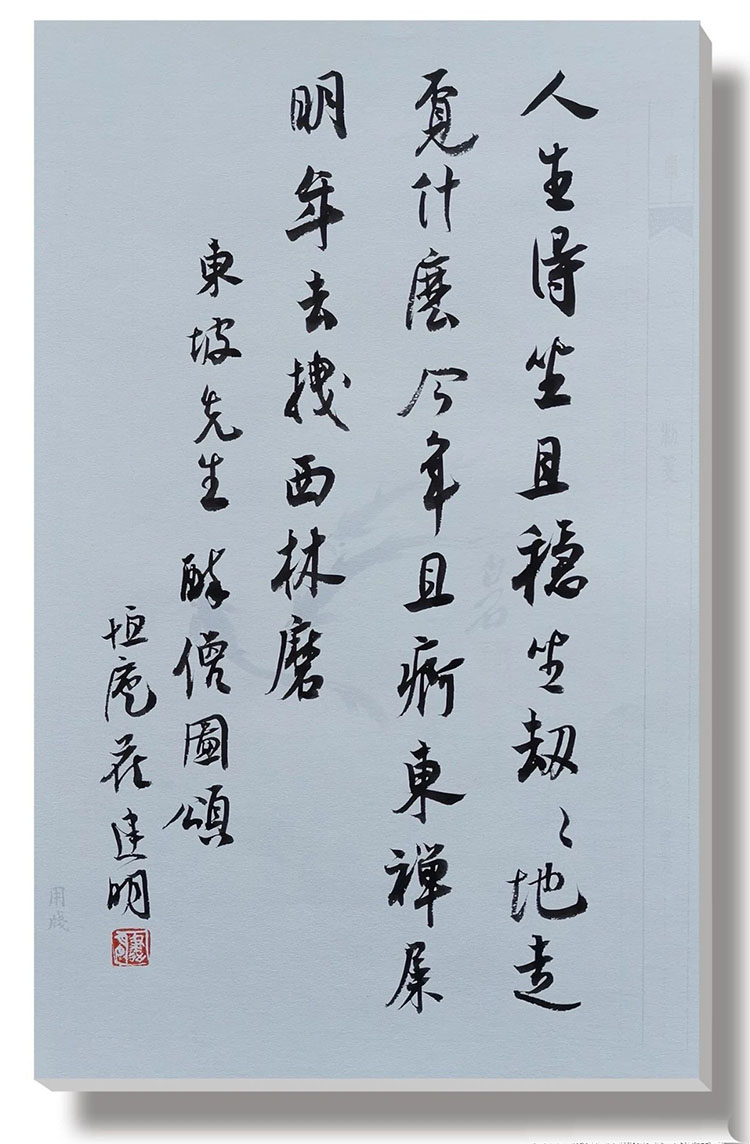 人生得坐且穩坐劫〻地走
覓什麼今年且痾東禪屎
明年去拽西林磨
東坡先生醉僧圖頌
恒庵建明
用牋